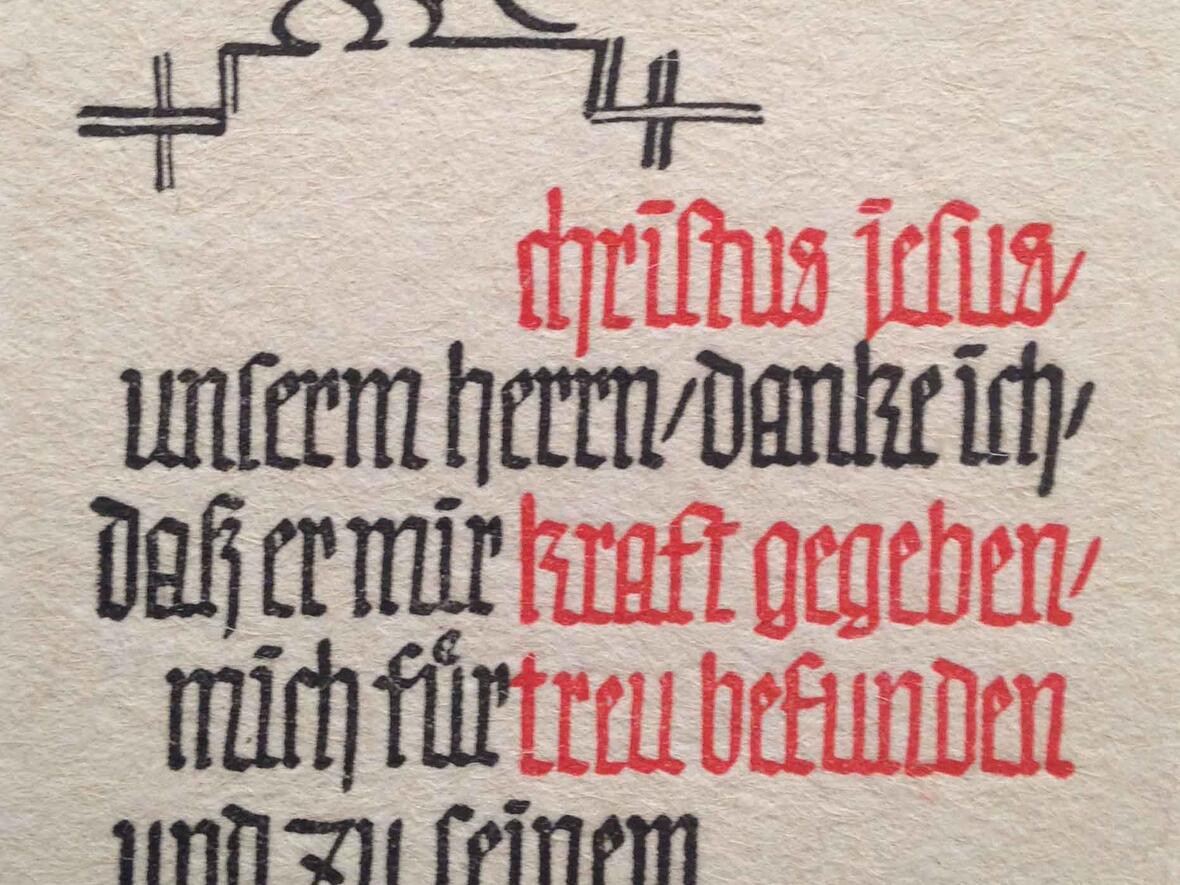 christus jesus/
unserm herrn/danke ich/
daß er mir kraft gegeben/
mich für treu befunden
und zu seinem